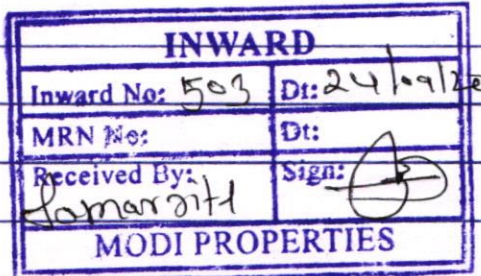 INWARD
Inward No: 503 Dt: 24/09/20
MRN No: Dt:
Received By: Sign:
MODI PROPERTIES